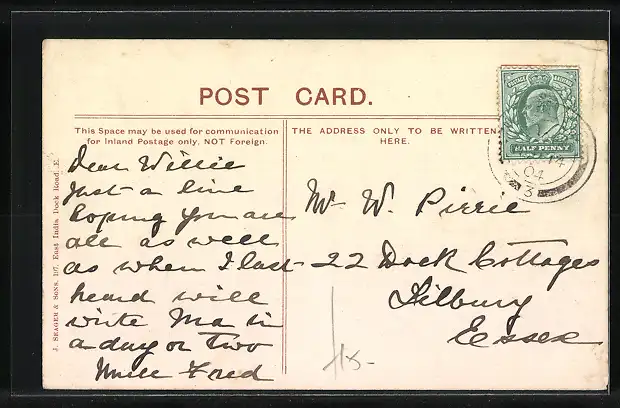 POST CARD.
This Space may be used for communication
for Inland Postage only, NOT Foreign.
THE ADDRESS ONLY TO BE WRITTEN
HERE.
Dear Willie
Just a line
hoping you are
all as well
as when I last
heard will
write Ma in
a day or two
Fred
Mr W. Pirrie
22 Dock Cottages
Tilbury
Essex
J. SEAGER & SONS, 197, East India Dock Road, E.
HALF PENNY
04
3